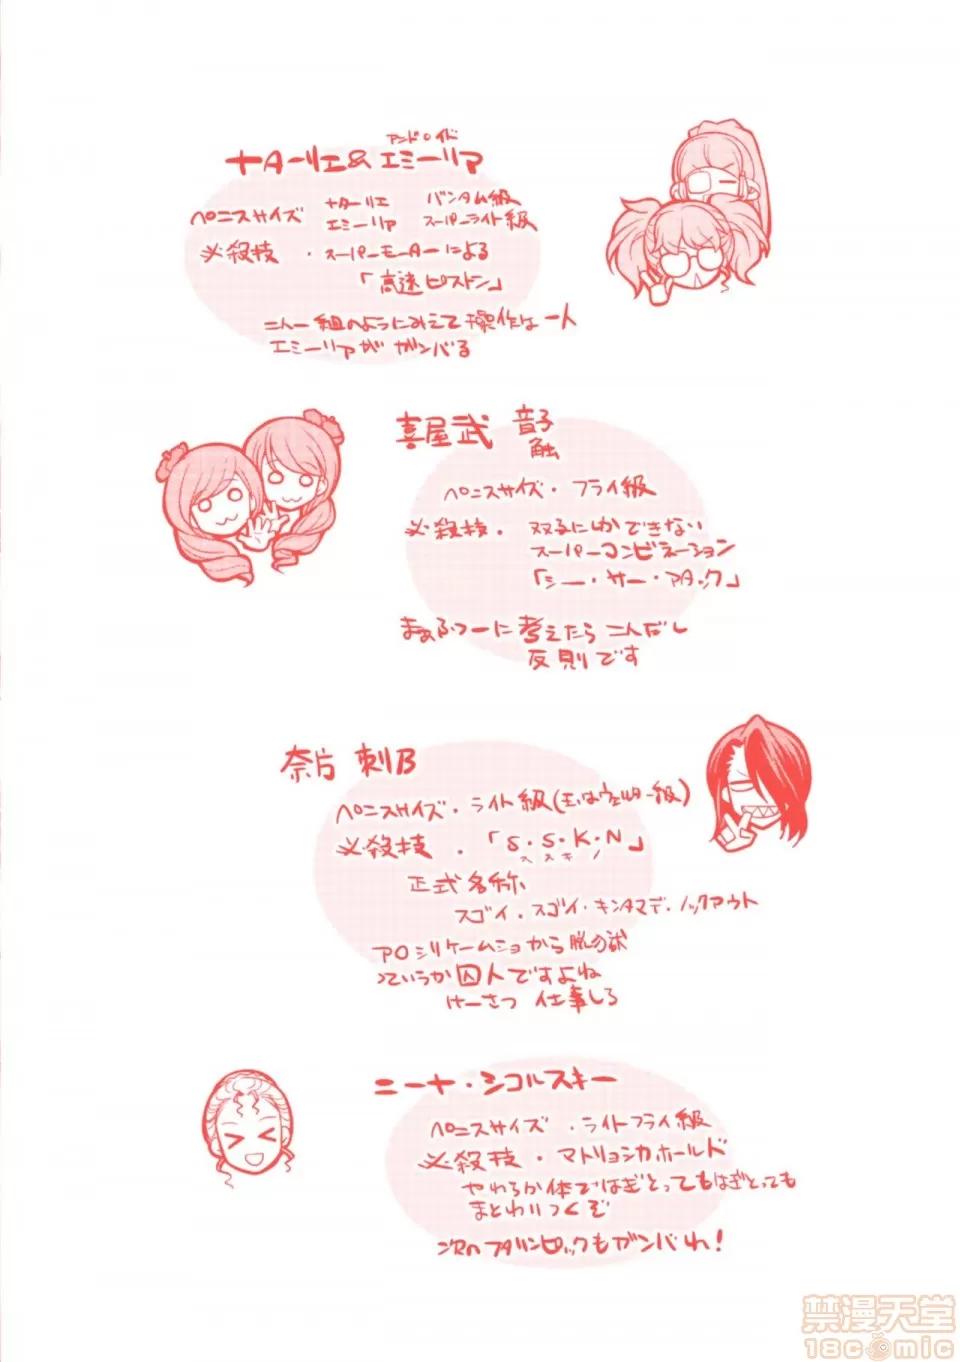 アンドロイド
ナターリエ&エミーリア
ペニスサイズ ナターリエ バンタム級
エミーリア スーパーライト級
必殺技・スーパーモーターによる
「高速ピストン」
二人一組のようにみえて操作は一人
エミーリアがガンバる
喜屋武 音子
触
ペニスサイズ・フライ級
必殺技・双子にしかできない
スーパーコンビネーション
「シー・サー・アタック」
まぁふつーに考えたら二人だし
反則です
奈片 刺B
ペニスサイズ・ライト級(玉はウェルター級)
必殺技・「S・S・K・N」
ススキノ
正式名称
スゴイ・スゴイ・キンタマデ・ノックアウト
アロシリケームショから脱獄
っていうか囚人ですよね
けーさつ 仕事しろ
ニーナ・シコルスキー
ペニスサイズ・ライトフライ級
必殺技・マトリョシカホールド
やわらか体ではぎとってもはぎとっても
まとわりつくぞ
次のフタリンピックもガンバれ!
禁漫天堂
18comic